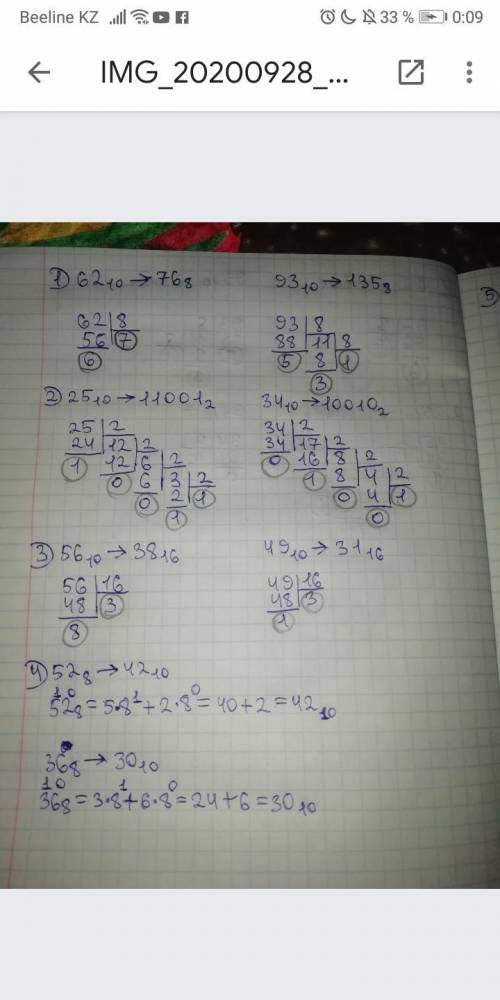 Beeline KZ 33 % 0:09
IMG_20200928_...
1) 62₁₀→76₈ 93₁₀→135₈
62 8 93 8
56 7 88 11 8
6 5 8 1
3
2) 25₁₀→11001₂ 34₁₀→10010₂
25 2 34 2
24 12 2 34 17 2
1 12 6 2 0 16 8 2
0 6 3 2 1 8 4 2
0 2 1 0 4 1
1 0
3) 56₁₀→38₁₆ 49₁₀→31₁₆
56 16 49 16
48 3 48 3
8 1
4) 52₈→42₁₀
1 0
52₈=5·8¹+2·8⁰=40+2=42₁₀
36₈→30₁₀
1 0
36₈=3·8¹+6·8⁰=24+6=30₁₀
5)